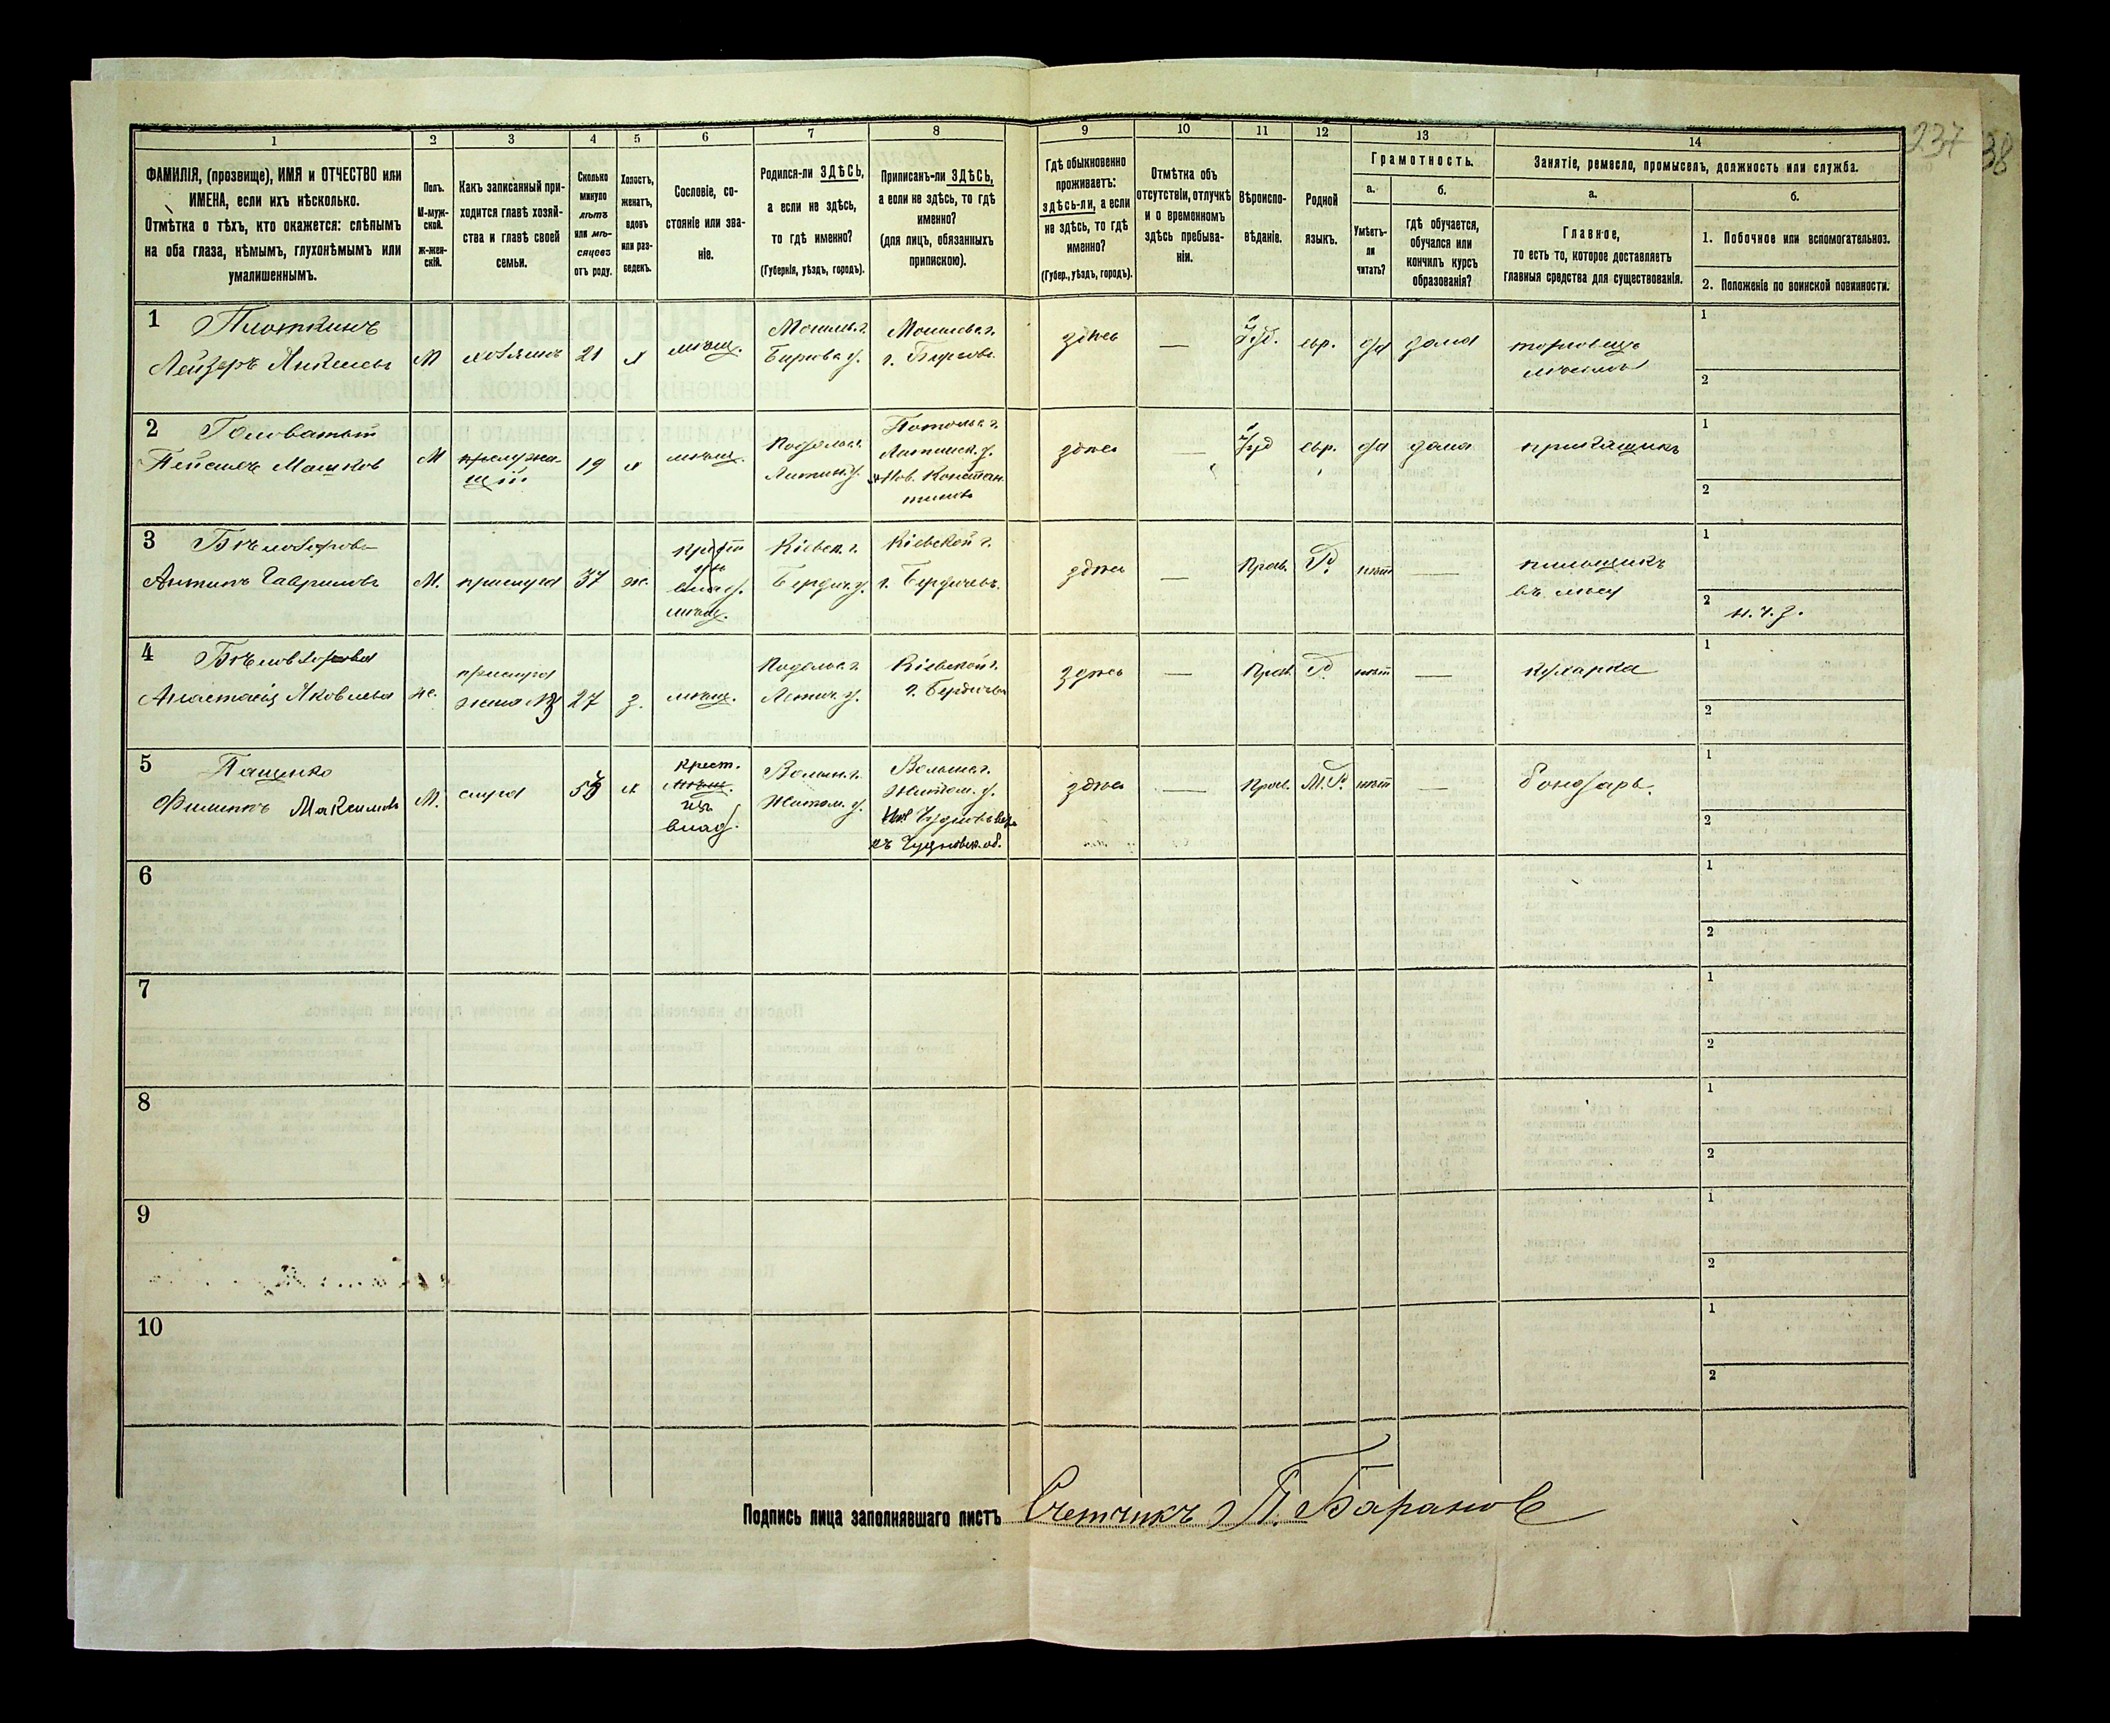 237
38
1
2
3
4
5
6
7
8
9
10
11
12
13
14
ФАМИЛІЯ, (прозвище), ИМЯ и ОТЧЕСТВО или
ИМЕНА, если ихъ нѣсколько.
Отмѣтка о тѣхъ, кто окажется: слѣпымъ
на оба глаза, нѣмымъ, глухонѣмымъ или
умалишеннымъ.
Полъ.
М-муж-
ской.
ж-жен-
скій.
Какъ записанный при-
ходится главѣ хозяй-
ства и главѣ своей
семьи.
Сколько
минуло
лѣтъ
или мѣ-
сяцевъ
отъ роду.
Холостъ,
женатъ,
вдовъ
или раз-
веденъ.
Сословіе, со-
стояніе или зва-
ніе.
Родился-ли ЗДѢСЬ,
а если не здѣсь,
то гдѣ именно?
(Губернія, уѣздъ, городъ).
Приписанъ-ли ЗДѢСЬ,
а если не здѣсь, то гдѣ
именно?
(для лицъ, обязанныхъ
припискою).
Гдѣ обыкновенно
проживаетъ:
здѣсь-ли, а если
не здѣсь, то гдѣ
именно?
(Губер., уѣздъ, городъ).
Отмѣтка объ
отсутствіи, отлучкѣ
и о временномъ
здѣсь пребыва-
ніи.
Вѣроиспо-
вѣданіе.
Родной
языкъ.
Грамотность.
а.
б.
Умѣетъ-
ли
читать?
гдѣ обучается,
обучался или
кончилъ курсъ
образованія?
Занятіе, ремесло, промыселъ, должность или служба.
а.
б.
Главное,
то есть то, которое доставляетъ
главныя средства для существованія.
1. Побочное или вспомогательноз.
2. Положеніе по воинской повинности.
1 Плоткинъ
Лейзеръ Янкелевъ
М
хозяинъ
21
х
мѣщ.
Могилев. г.
г.
здѣсь
—
Іуд.
евр.
да
дома
торговецъ
1
2
2 Головатый
Мошков
М
прислужа-
щій
19
х
мѣщ.
Подольск. г.
Литин. у.
Литинск. у.
Нов. Констан-
тинов
здѣсь
—
Іуд
евр.
да
дома
прикащикъ
1
2
3
Антипъ Гавриловъ
М.
прислуга
37
ж.
мѣщ.
Кіевск. г.
Бердич. у.
Кіевской г.
г. Бердичевъ.
здѣсь
—
Прав.
Р.
нѣтъ
—
пильщикъ
въ лѣсу
1
2 н. ч. з.
4
Анастасія Яковлева
ж.
прислуга
жена №3
27
з.
мѣщ.
Подольск. г.
Летич. у.
Кіевской г.
г. Бердичевъ
здѣсь
—
Прав.
Р.
нѣтъ
—
кухарка
1
2
5 Пащенко
Филиппъ Максимовъ
М.
слуга
х
крест.
мѣщ.
изъ
влад.
Волын. г.
Житом. у.
Волынск. г.
Житом. у.
къ Чудновск. об.
здѣсь
—
Прав.
М.Р.
нѣтъ
—
бондарь.
1
2
6
1
2
7
1
2
8
1
2
9
1
2
10
1
2
Подпись лица заполнявшаго листъ Счетчикъ П. Баранов